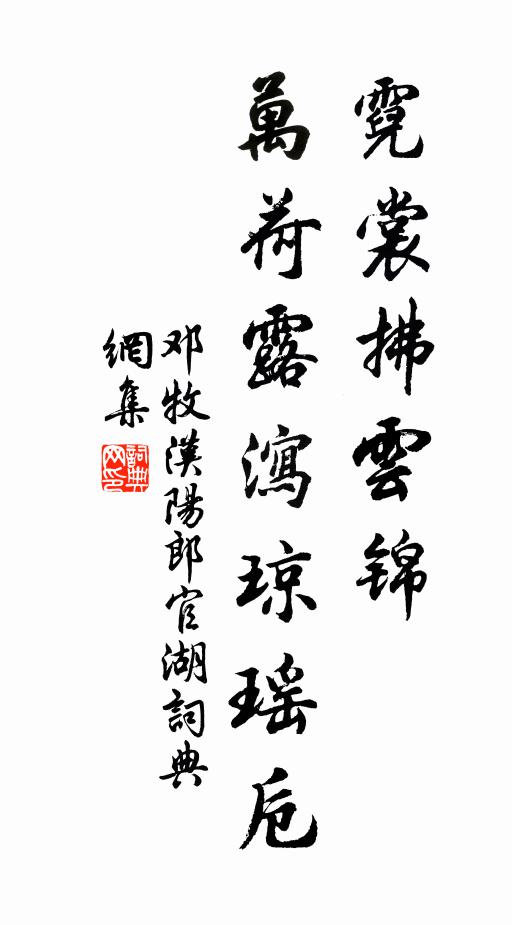 霓裳拂雲锦
萬荷露瀉琼瑶卮
邓牧漢陽郎官湖詞典
網集
詞典网印